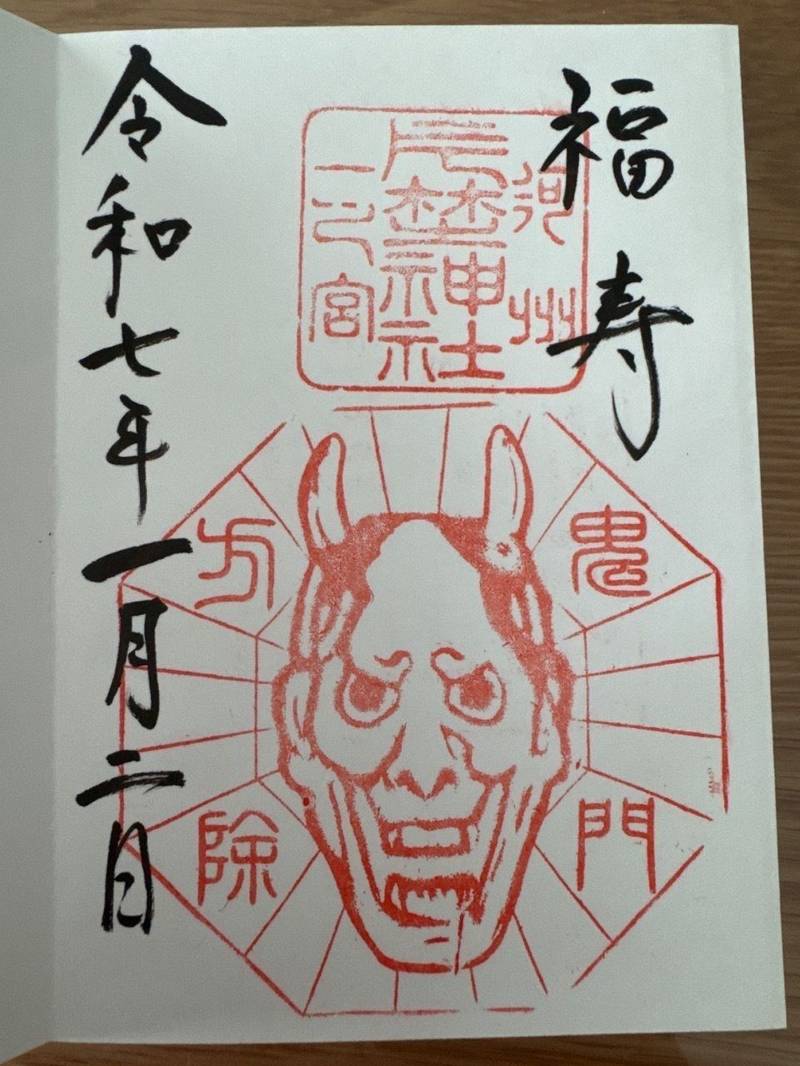 福寿
河州
片埜神社
一 宮
鬼門
方除
令和七年一月二日